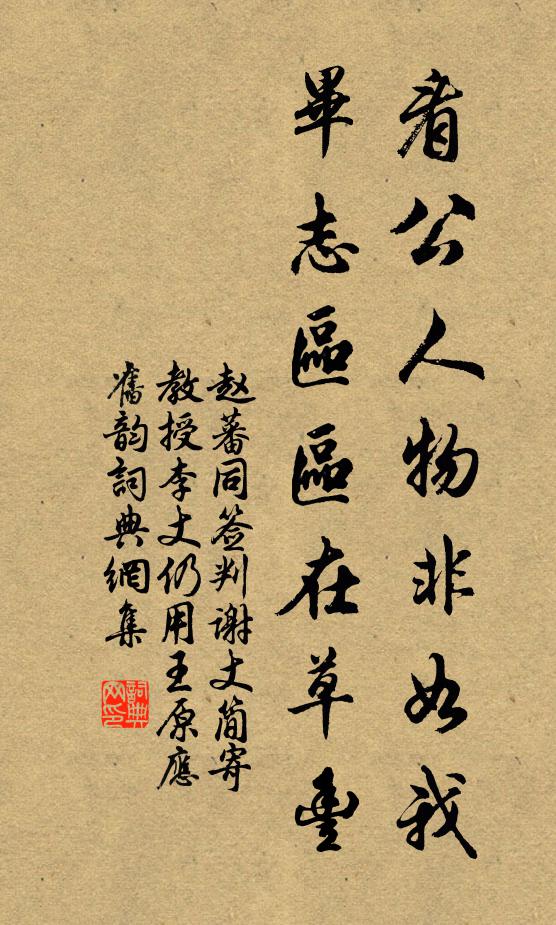 看公人物非如我
畢志區區在草豐
赵蕃同簽判謝丈簡寄
教授李丈仍用王原應
舊韵詞典網集
詞典
网印